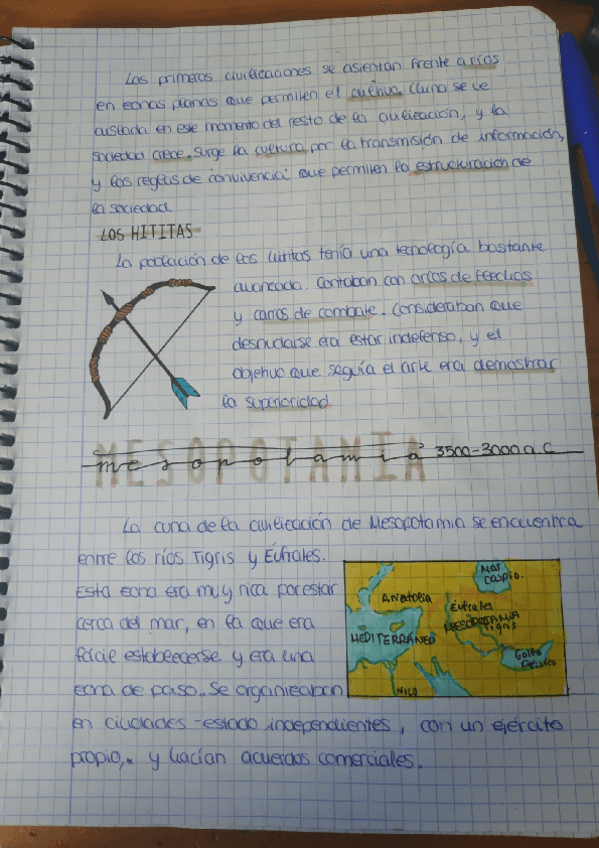 Las primeras civilizaciones se asientan frente a ríos
en zonas planas que permiten el cultivo. Cuna se ve
aislada en este momento del resto de la civilización, y la
sociedad crece. Surge la cultura por la transmisión de información,
y las reglas de convivencia que permiten la estructuración de
la sociedad.
LOS HITITAS
La población de los hititas tenía una tecnología bastante
avanzada. Contaban con arcos de flechas
y carros de combate. Consideraban que
desnudarse era estar indefenso, y el
objetivo que seguía el arte era demostrar
la superioridad.
MESOPOTAMIA
mesopotamia 3500-3000 a.C
La cuna de la civilización de Mesopotamia se encuentra
entre los ríos Tigris y Éufrates.
Esta zona era muy rica por estar
cerca del mar, en la que era
fácil establecerse y era una
zona de paso. Se organizaban
en ciudades-estado independientes, con un ejército
propio, y hacían acuerdos comerciales.
Mar
Caspio.
Anatolia
Éufrates
MESOPOTAMIA
Tigris
MEDITERRÁNEO
Golfo
Pérsico
NILO